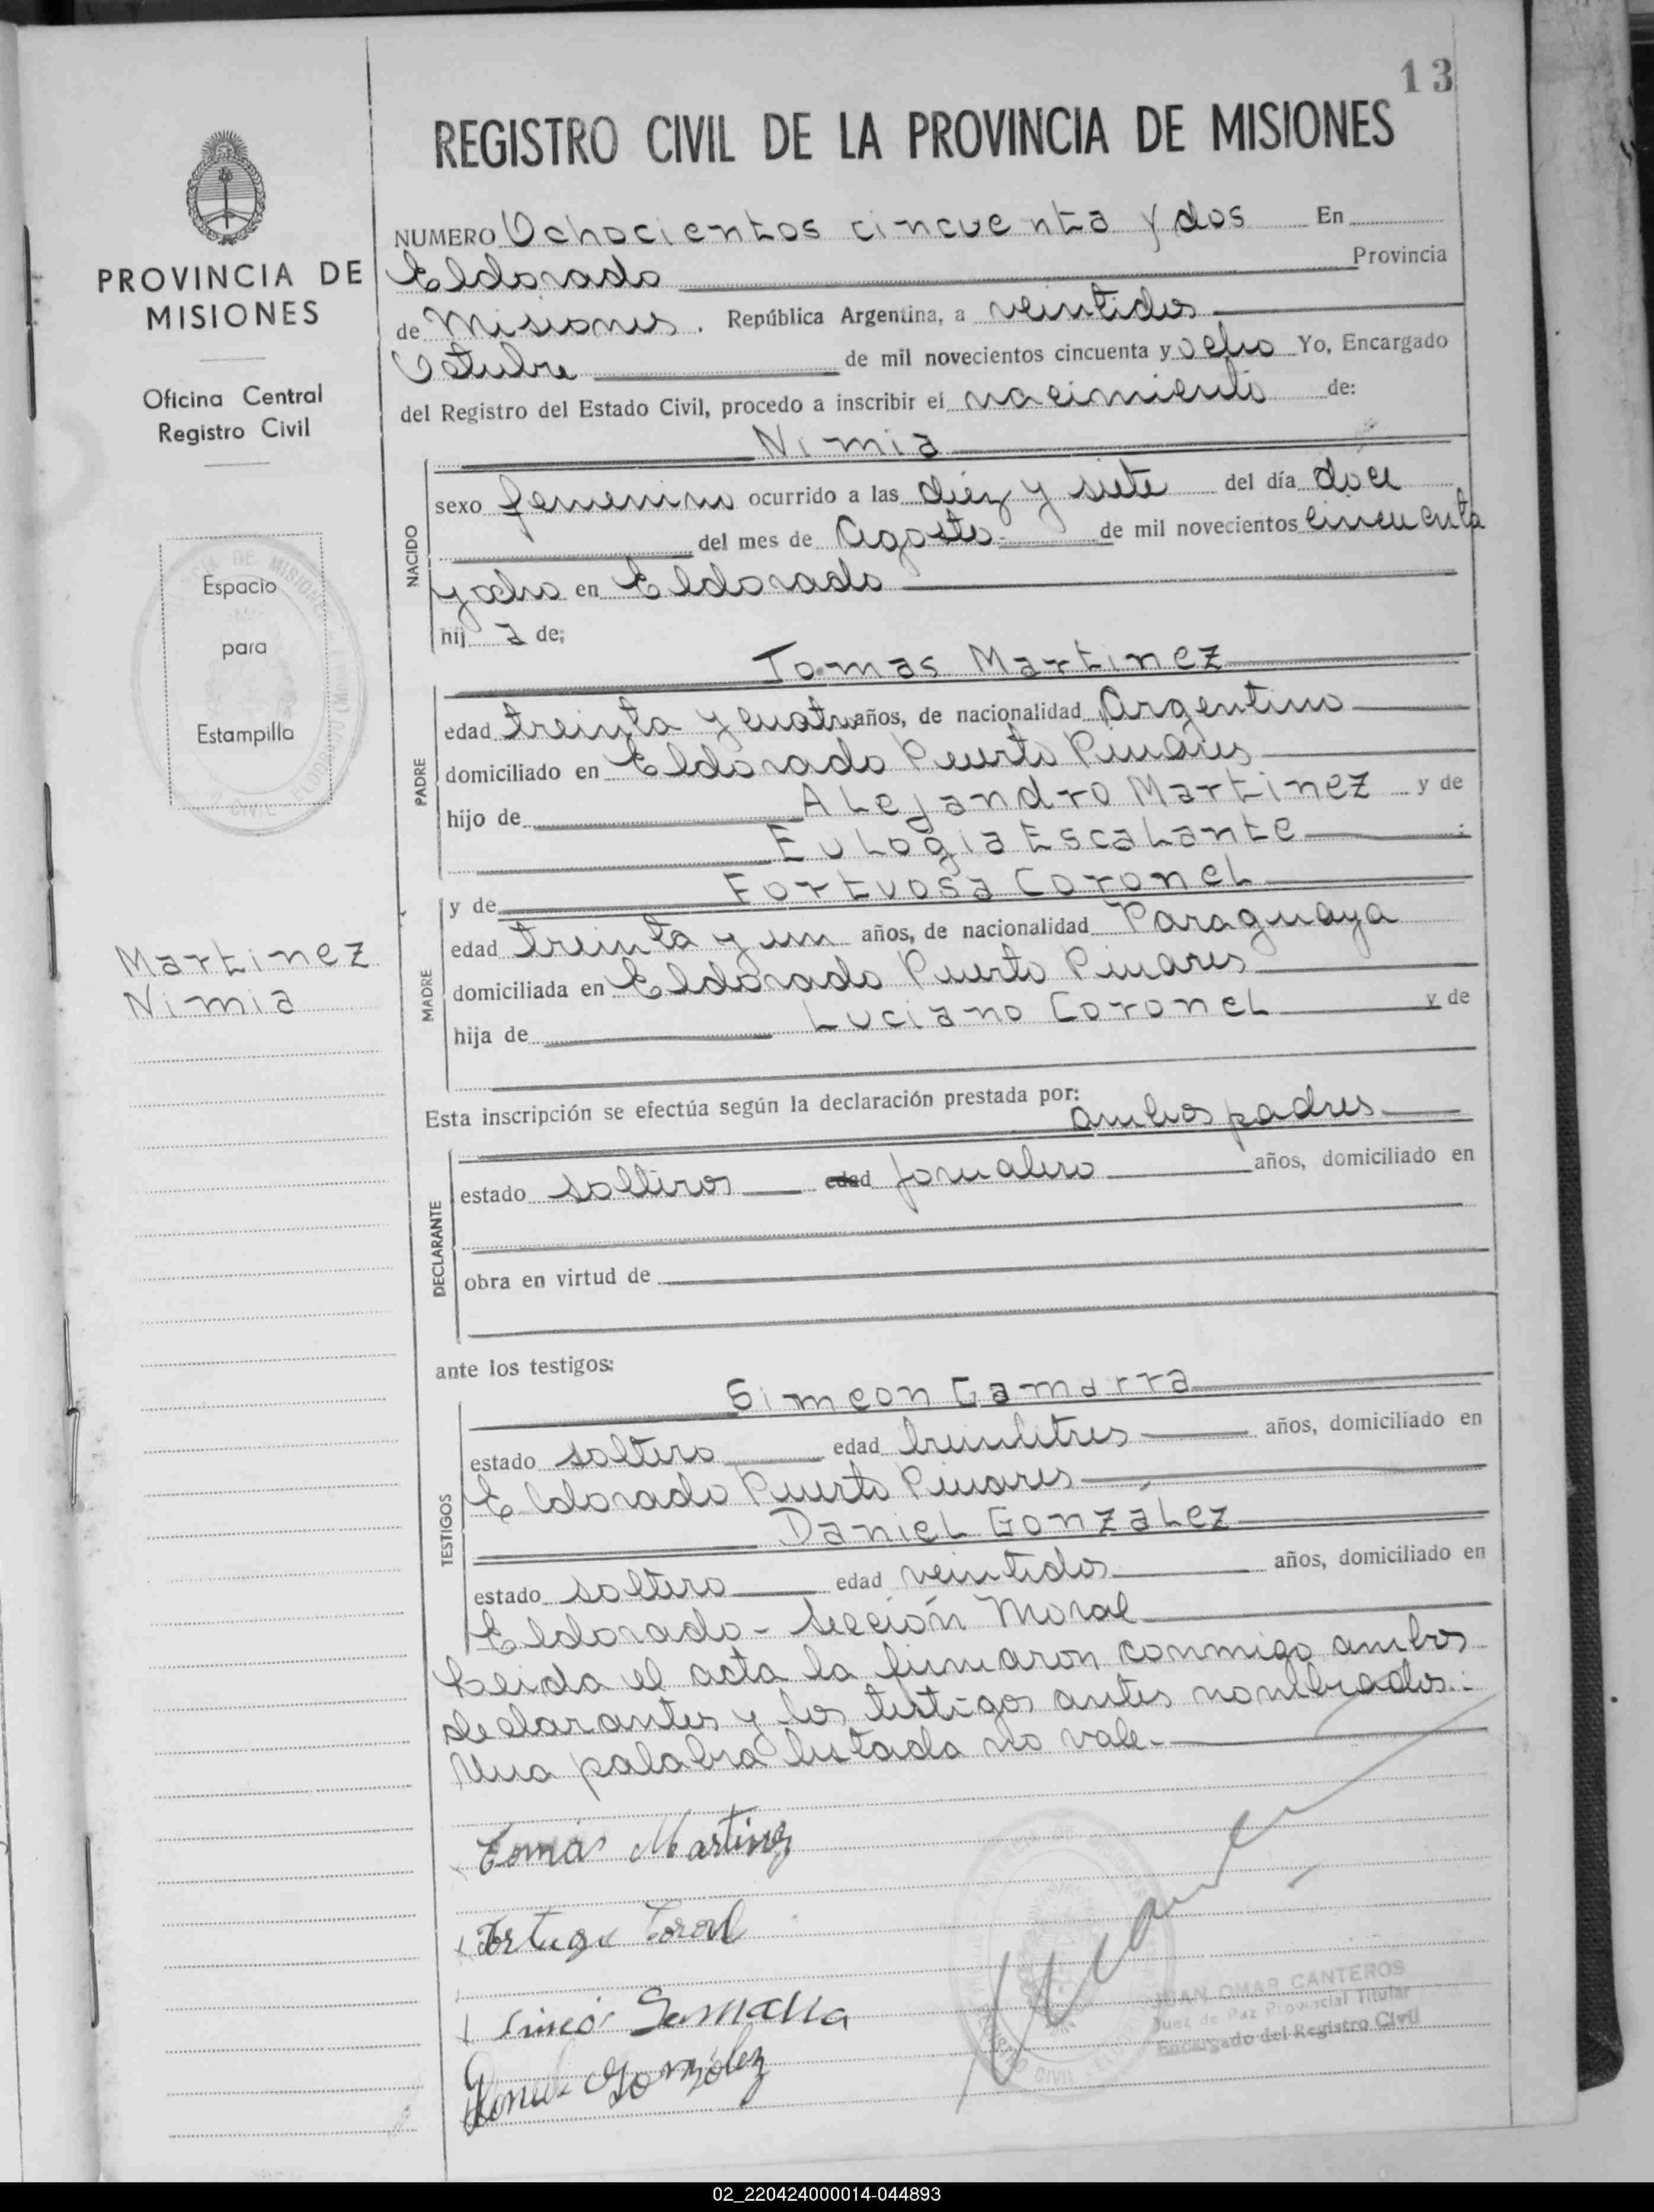 13
REGISTRO CIVIL DE LA PROVINCIA DE MISIONES
PROVINCIA DE
MISIONES
Oficina Central
Registro Civil
Espacio
para
Estampilla
Martinez
Nimia
NUMERO Ochocientos cincuenta y dos En
Eldorado Provincia
de Misiones. República Argentina, a veintidos
Octubre de mil novecientos cincuenta y ocho Yo, Encargado
del Registro del Estado Civil, procedo a inscribir el nacimiento de:
Nimia
NACIDO
sexo femenino ocurrido a las diez y siete del día doce
del mes de Agosto de mil novecientos cincuenta
y ocho en Eldorado
hij a de:
Tomas Martinez
PADRE
edad treinta y cuatro años, de nacionalidad Argentino
domiciliado en Eldorado Puerto Pinares
hijo de Alejandro Martinez y de
Eulogia Escalante
y de Fortuosa Coronel
MADRE
edad treinta y un años, de nacionalidad Paraguaya
domiciliada en Eldorado Puerto Pinares
hija de Luciano Coronel y de
Esta inscripción se efectúa según la declaración prestada por:
ambos padres
DECLARANTE
estado solteros edad jornalero años, domiciliado en
obra en virtud de
ante los testigos:
Simeon Gamarra
TESTIGOS
estado soltero edad años, domiciliado en
Eldorado Puerto Pinares
Daniel González
estado soltero edad veintidos años, domiciliado en
Eldorado - Sección Moral
Leida el acta la firmaron conmigo ambos
declarantes y los testigos antes nombrados.
Una palabra testada no vale.
Tomás Martinez
González
JUAN OMAR CANTEROS
Juez de Paz Provincial Titular
Encargado del Registro Civil
02_220424000014-044893